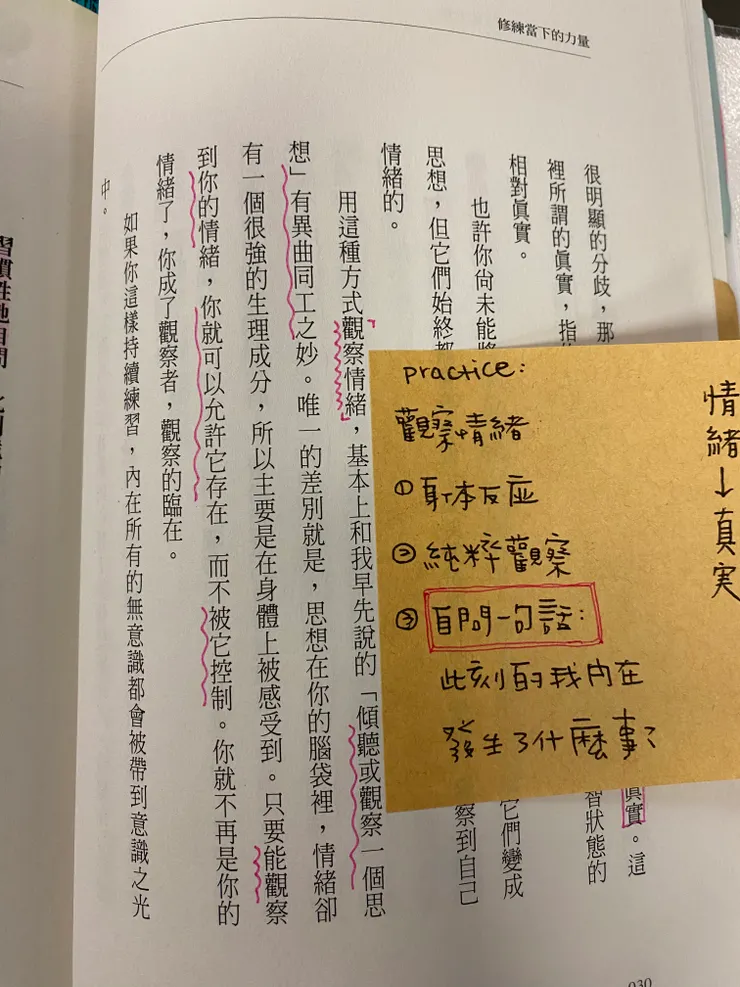 修練當下的力量
真實。這
很明顯的分歧,那
智狀態的
裡所謂的真實,指
相對真實。
也許你尚未能將
它們變成
思想,但它們始終都
察到自己
情緒的。
用這種方式「觀察情緒」,基本上和我早先說的「傾聽或觀察一個思
想」有異曲同工之妙。唯一的差別就是,思想在你的腦袋裡,情緒卻
有一個很強的生理成分,所以主要是在身體上被感受到。只要能觀察
到你的情緒,你就可以允許它存在,而不被它控制。你就不再是你的
情緒了,你成了觀察者,觀察的臨在。
如果你這樣持續練習,內在所有的無意識都會被帶到意識之光
中。
030
practice:
觀察情緒
①身体反应
②純粹觀察
③自問一句話:
此刻的我內在
發生了什麼事?
情緒→真実
習慣性地自問